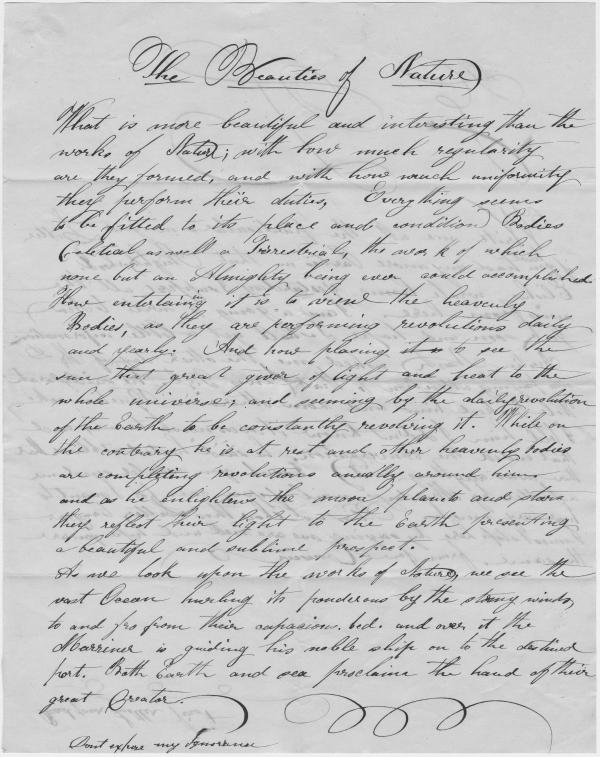 The Beauties of Nature
What is more beautiful and interesting than the
works of Nature; with how much regularity
are they formed, and with how much uniformity
they perform their duties, Everything seems
to be fitted to its place and condition Bodies
Celetial as well a Terrestrial, the work of which
none but an Almighty being ever could accomplished
How entertaining it is to view the heavenly
Bodies, as they are performing revolutions daily
and yearly. And how plasing it is to see the
sun that great giver of light and heat to the
whole universe; and seeming by the daily revolution
of the Earth to be constantly revolving it. While on
the contrary he is at rest and other heavenly bodies
are completing revolutions anually around him
and as he enlightens the moon planets and stars
they reflect their light to the Earth presenting
a beautiful and sublime prospect.
As we look upon the works of Nature, we see the
vast Ocean hurling its ponderous by the strong winds,
to and fro from their capacious bed. and over it the
Marriner is guiding his noble ship on to the destined
port. Both Earth and sea proclaim the hand of their
great Creator.
Dont expose my Ignorance